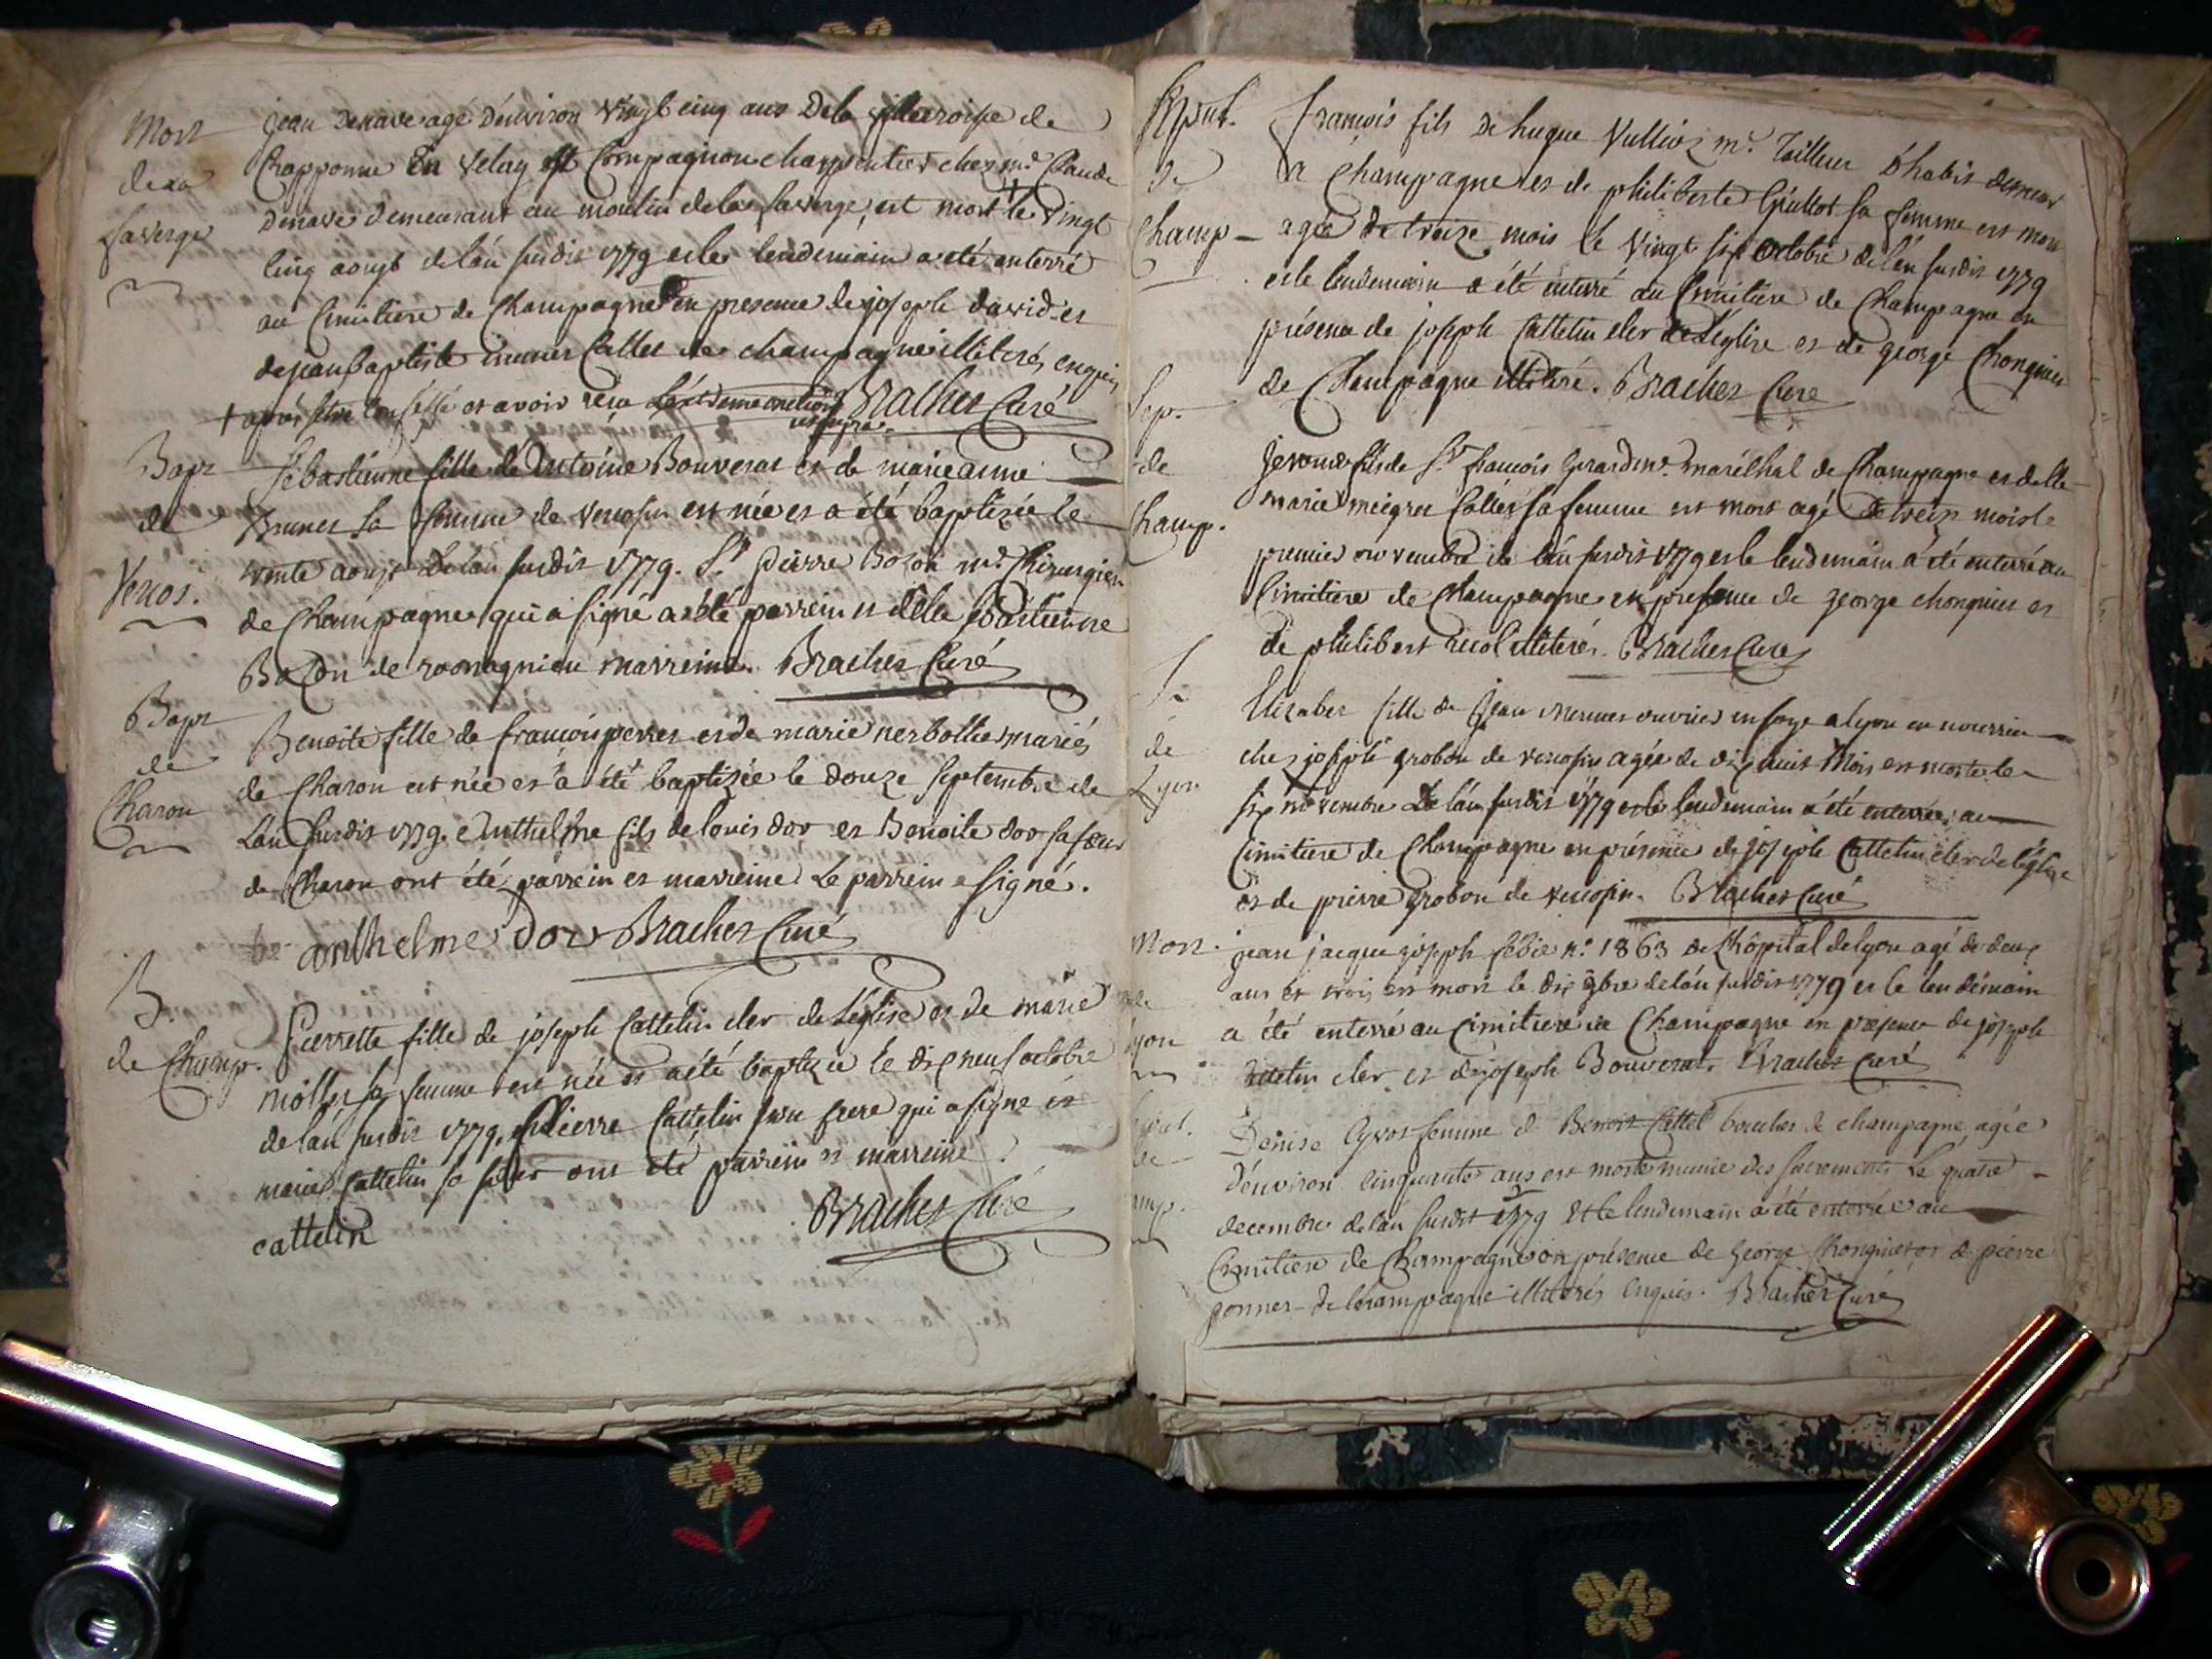 Mort
de la
faverge
jean Denave agé d'environ vingt cinq ans de la paroisse de
Chapponne En Velay Compagnon charpentier chez md. Claude
Denave demeurant au moulin de la faverge, est mort le vingt
cinq aoust de l'an susdit 1779 et le lendemain a eté enterré
au Cimitiere de Champagne en presence de joseph david et
de jean baptiste Cattet de champagne illiterés enquis
+ après s'etre confessé et avoir recu Bracher Curé
Bapt
de
Veños.
Sebastienne fille de Antoine Bouverat et de marie anne
Brunet sa femme de vencosin est née et a été baptisée le
trente aoust de l'an susdit 1779. Sr. pierre Bozon md. Chirurgien
de Champagne qui a signé a été parrein et dlle sebastienne
Bozon de romagnieu marreine. Bracher Curé
Bapt
de
Charon
Benoite fille de francois perret et de marie nerbollier mariés
de Charon est née et a été baptizée le douze septembre de
L'an susdit 1779. Anthelme fils de louis dor et Benoite dor sa sœur
de Charon ont été parrein et marreine Le parrein a signé.
anthelme dor Bracher Curé
B.
de Champ.
Pierrette fille de joseph Cattelin cler de L'église et de marie
mollet sa femme est née et a été baptizée le dix neuf octobre
de l'an susdit 1779. pierre Cattelin son frere qui a signé et
marie Cattelin sa sœur ont été parrein et marreine.
cattelin Bracher Curé
Sépul.
de
Champ –
françois fils de hugue Vullioz me. Tailleur d'habit demeur
a Champagne et de philiberte Guillot sa femme est mort
agé de treize mois le vingt six octobre de l'an susdit 1779
et le lendemain a été enterré au Cimitiere de Champagne en
présence de joseph Cattelin cler de L'église et de george Chongnier
de Champagne illiteré. Bracher Curé
Sep.
de
Champ.
fils de Sr. francois Girard me. maréchal de Champagne et de dlle
marie Cattet sa femme est mort agé de treize mois le
premier novembre de l'an susdit 1779 et le lendemain a été enterré au
Cimitiere de Champagne en presence de george chongnier et
de philibert recol illiterés. Bracher Curé
S.
de
Lyon
Elizabet fille de jean mermet ouvrier en soye a lyon en nourrice
chez joseph grobon de vencosin agée de dix huit mois est morte le
six novembre de l'an susdit 1779 et le lendemain a été enterrée au
Cimitiere de Champagne en présence de joseph Cattelin cler de l'église
et de pierre grobon de vencosin. Bracher Curé
Mort
de
lyon
jean jacque joseph n.° 1863 de l'hôpital de lyon agé de deux
ans et trois est mort le dix 9bre de l'an susdit 1779 et le lendemain
a été enterré au Cimitiere de Champagne en presence de joseph
Cattelin cler et de joseph Bouverat. Bracher Curé
de
Denise Cyvot femme de Benoit Cattet boucher de champagne, agée
d'environ cinquante ans est morte munie des sacrements Le quatre
decembre de l'an susdit 1779 et le lendemain a été enterrée au
Cimitiere de Champagne en présence de George Chongnier et de pierre
gonnet de champagne illiterés enquis. Bracher Curé